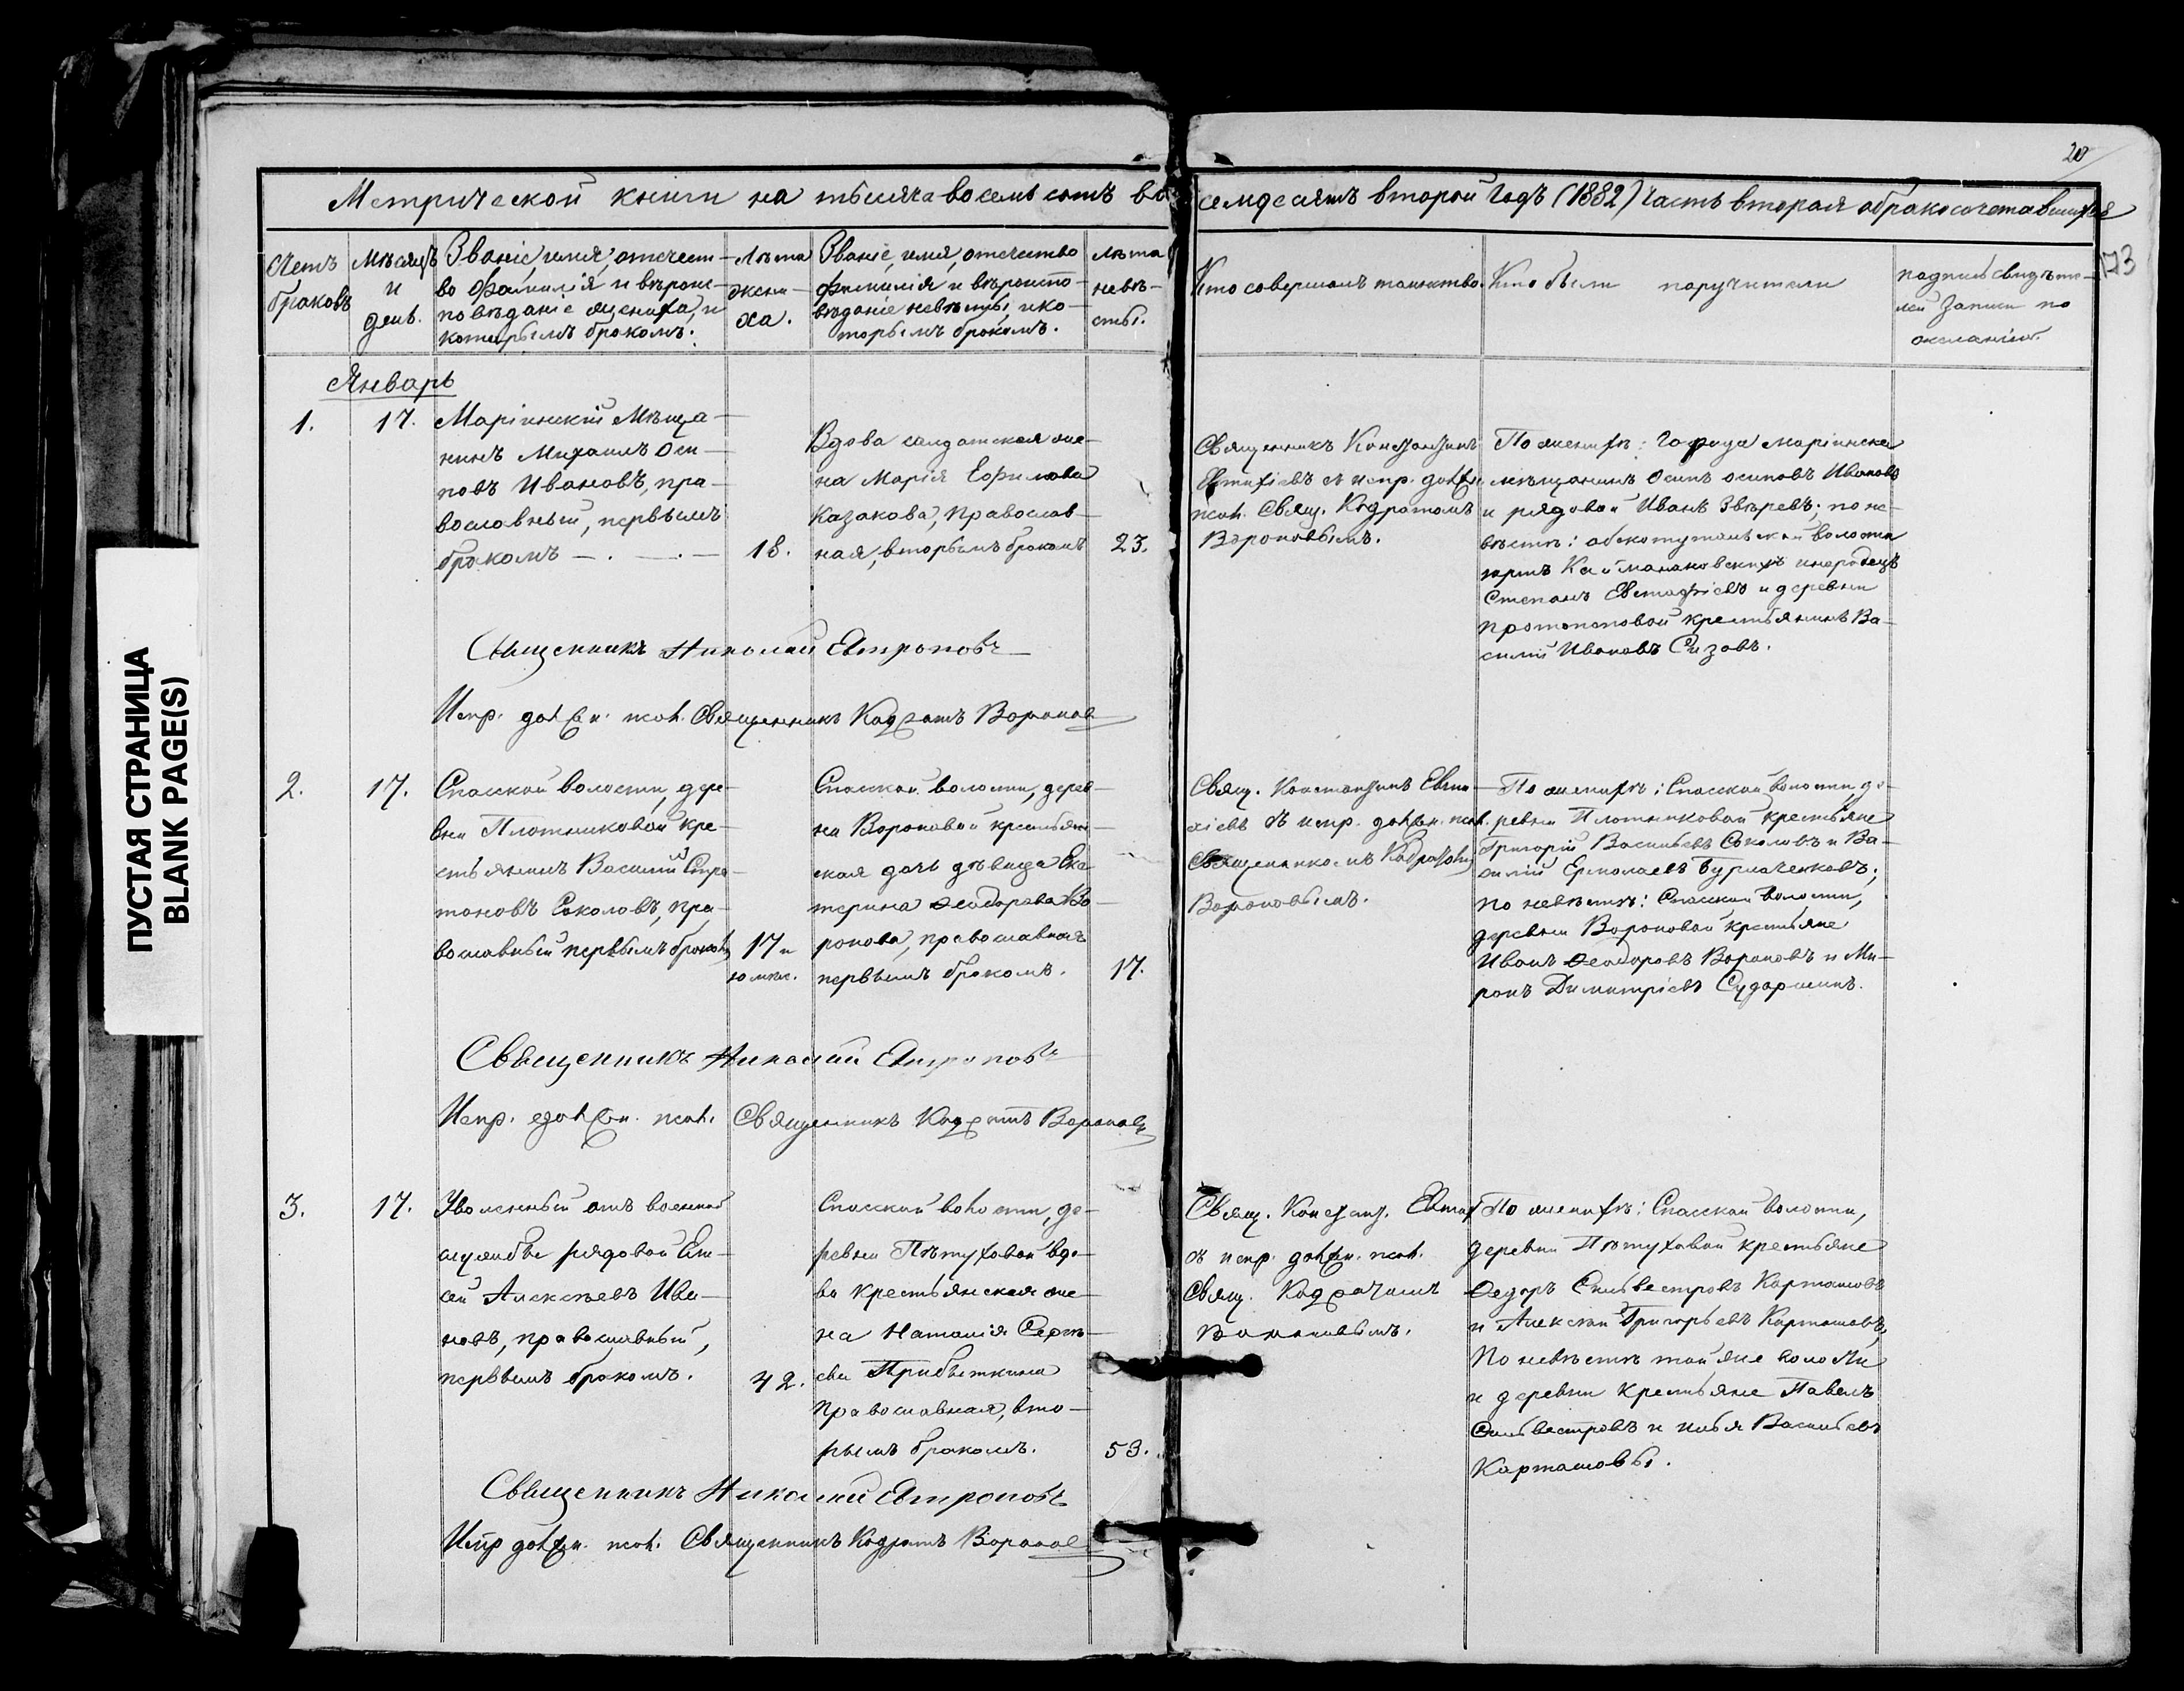 20
173
Метрической книги на тысяча восемь сотъ восемдесятъ второй годъ (1882) Часть вторая о бракосочетавшихся
Счетъ браковъ
Мѣсяцъ и день.
Званіе, имя, отчест-
во фамилія и вѣроис-
повѣданіе жениха, и
которымъ бракомъ.
Лѣта
жени-
ха.
Званіе, имя, отечество
фамилія и вѣроиспо-
вѣданіе невѣсты, и ко-
торымъ бракомъ.
Лѣта
невѣ-
сты.
Кто совершалъ таинство.
Кто были поручители
подпись свидѣте-
лей записи по
желанію.
Январь
1.
17.
Маріинскій Мѣща-
нинъ Михаилъ Оси-
повъ Ивановъ, пра-
вославный, первымъ
бракомъ
18.
Вдова солдатская же-
на Марія Ефимова
Казакова, Православ-
ная, вторымъ бракомъ
23.
Священникъ Константинъ
Евтихіевъ съ испр. долж.
псал. Свящ. Кодратомъ
Вороновымъ.
По женихѣ: Города Маріинска
мѣщанинъ Осипъ Осиповъ Ивановъ
и рядовой Иванъ Звѣревъ; по не-
вѣстѣ: волости
юртъ Каймановскихъ инородецъ
Степанъ Евстафіевъ и деревни
Протопоповой крестьянинъ Ва-
силій Ивановъ Сизовъ.
Священникъ Николай
Испр. должн. псал. Священникъ Кодратъ Вороновъ
2.
17.
Спасской волости, дере-
вни Плотниковой кре-
стьянинъ Василій
Соколовъ, пра-
вославный первымъ бракомъ
17 и
10 мѣс.
Спасской волости, дерев-
ни Вороновой крестьян-
ская дочь дѣвица Ека-
терина Ѳеодорова Во-
ронова, православная
первымъ бракомъ.
17.
Свящ. Константинъ Евти-
хіевъ съ испр. должн. псал.
Священникомъ Кодратомъ
Вороновымъ.
По женихѣ: Спасской волости де-
ревни Плотниковой крестьяне
Григорій Васильевъ Соколовъ и Ва-
силій Ермолаевъ Бурмаченковъ;
по невѣстѣ: Спасской волости,
деревни Вороновой крестьяне
Иванъ Ѳеодоровъ Вороновъ и Ми-
ронъ Димитріевъ
Священникъ Николай
Испр. должн. псал. Священникъ Кодратъ Вороновъ
3.
17.
Уволенный отъ военной
службы рядовой Ели-
сей Алексѣевъ Ива-
новъ, православный,
первымъ бракомъ.
42.
Спасской волости, де-
ревни Пѣтуховой вдо-
ва крестьянская же-
на Наталія Сергѣ-
ева Прибыткина
Православная, вто-
рымъ бракомъ.
53.
Свящ. Констант. Евтих.
съ испр. должн. псал.
Свящ. Кодратомъ
Вороновымъ.
По женихѣ: Спасской волости,
деревни Пѣтуховой крестьяне
Ѳедоръ Сильвестровъ Карташовъ
и Алексѣй Григорьевъ Карташовъ,
По невѣстѣ той же волости
и деревни крестьяне Павелъ
Сильвестровъ и Илья Васильевъ
Карташовы.
Священникъ Николай
Испр должн. псал. Священникъ Кодратъ Вороновъ
ПУСТАЯ СТРАНИЦА
BLANK PAGE(S)